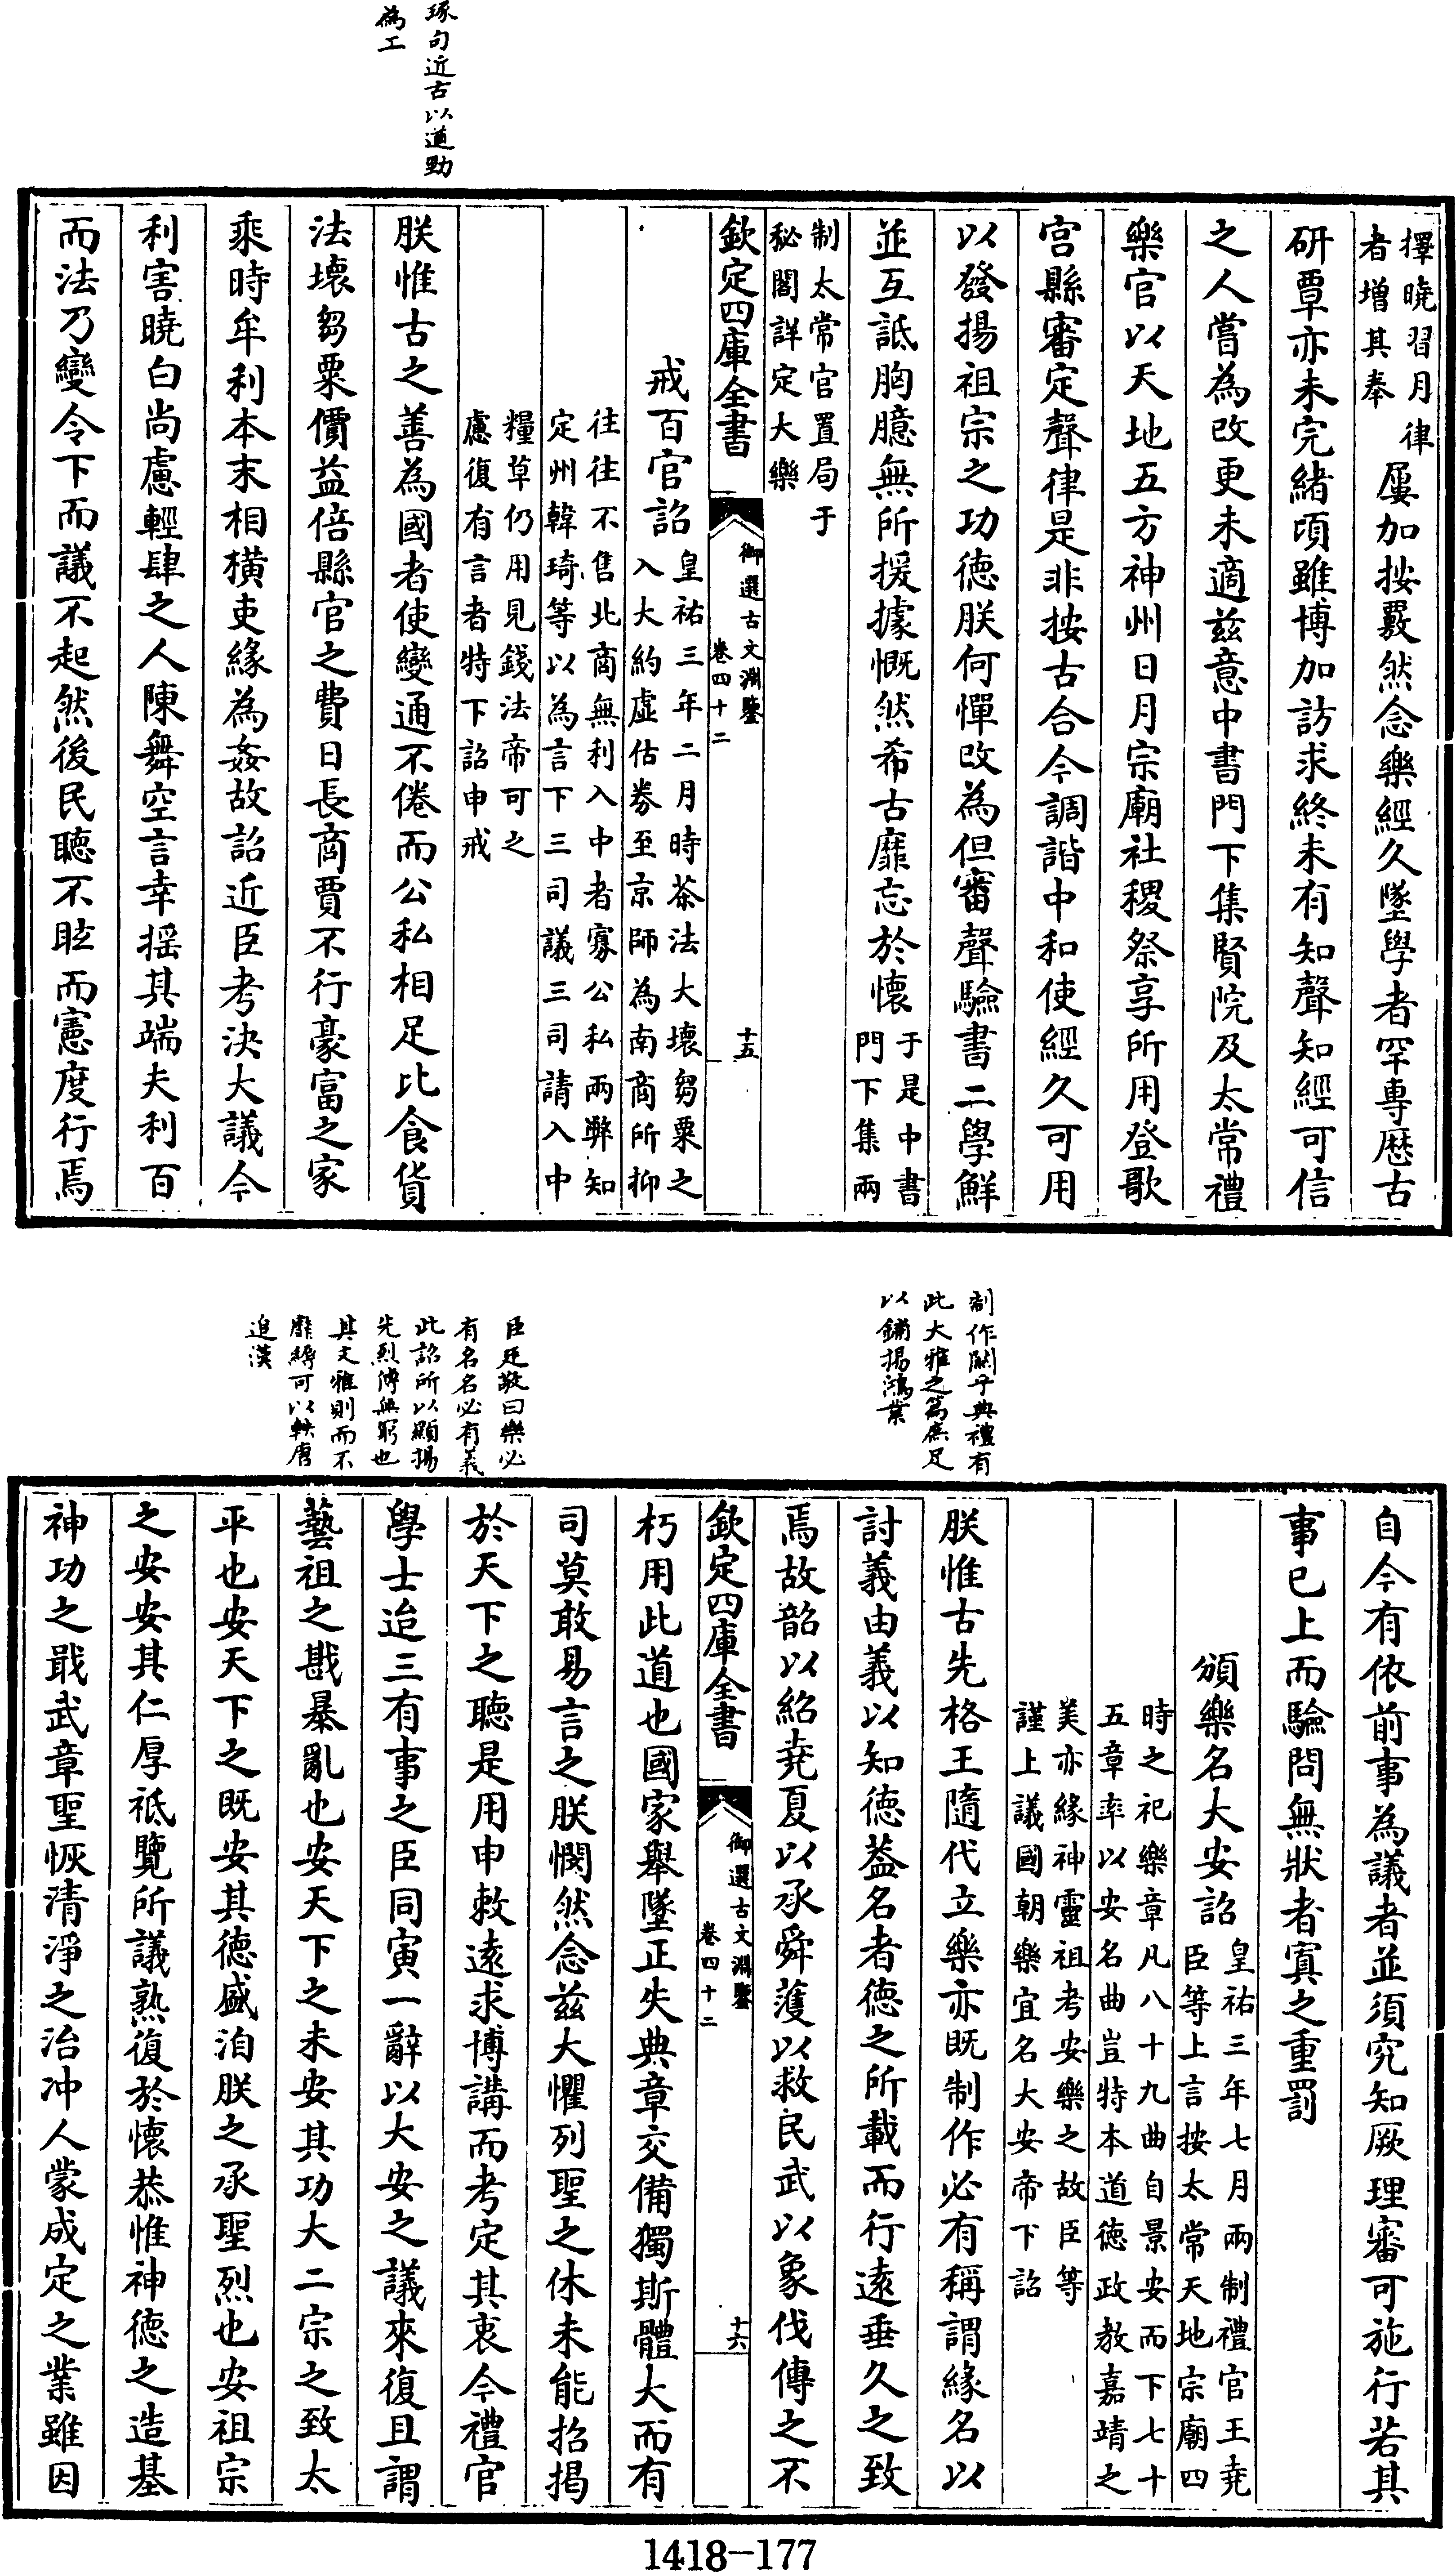 琢句近古以遒勁
為工
擇曉習月律
者增其奉
屢加按覈然念樂經久墜學者罕専歴古
研覃亦未完緒頃雖博加訪求終未有知聲知經可信
之人嘗為改更未適兹意中書門下集賢院及太常禮
樂官以天地五方神州日月宗廟社稷祭享所用登歌
宫縣審定聲律是非按古合今調諧中和使經久可用
以發揚祖宗之功徳朕何憚改為但審聲驗書二學鮮
並互詆胸臆無所援據慨然希古靡忘於懐
于是中書
門下集兩
制太常官置局于
秘閣詳定大樂
欽定四庫全書
御選古文淵鑒
卷四十二
十五
戒百官詔
皇祐三年二月時茶法大壊芻粟之
入大約虚估劵至京師為南商所抑
往往不售北商無利入中者寡公私兩弊知
定州韓琦等以為言下三司議三司請入中
糧草仍用見錢法帝可之
慮復有言者特下詔申戒
朕惟古之善為國者使變通不倦而公私相足比食貨
法壊芻粟價益倍縣官之費日長商賈不行豪富之家
乘時牟利本末相横吏緣為姦故詔近臣考決大議今
利害曉白尚慮輕肆之人陳舞空言幸揺其端夫利百
而法乃變令下而議不起然後民聽不眩而憲度行焉
制作闗乎典禮有
此大雅之篇庶足
以鋪揚鴻業
臣廷敬曰樂必
有名名必有義
此詔所以顯揚
先烈傳無窮也
其文雅則而不
靡縟可以軼唐
追漢
自今有依前事為議者並須究知厥理審可施行若其
事已上而驗問無狀者寘之重罰
頒樂名大安詔
皇祐三年七月兩制禮官王堯
臣等上言按太常天地宗廟四
時之祀樂章凡八十九曲自景安而下七十
五章率以安名曲豈特本道徳政教嘉靖之
美亦緣神靈祖考安樂之故臣等
謹上議國朝樂宜名大安帝下詔
朕惟古先格王隨代立樂亦既制作必有稱謂緣名以
討義由義以知徳葢名者徳之所載而行遠垂久之致
焉故韶以紹堯夏以承舜濩以救民武以象伐傳之不
欽定四庫全書
御選古文淵鑒
卷四十二
十六
朽用此道也國家舉墜正失典章交備獨斯體大而有
司莫敢易言之朕憫然念兹大懼列聖之休未能招掲
於天下之聴是用申敕逺求博講而考定其衷今禮官
學士迨三有事之臣同寅一辭以大安之議來復且謂
藝祖之戡暴亂也安天下之未安其功大二宗之致太
平也安天下之既安其徳盛洎朕之承聖烈也安祖宗
之安安其仁厚祗覽所議熟復於懐恭惟神徳之造基
神功之戢武章聖恢清淨之治冲人蒙成定之業雖因
1418-177